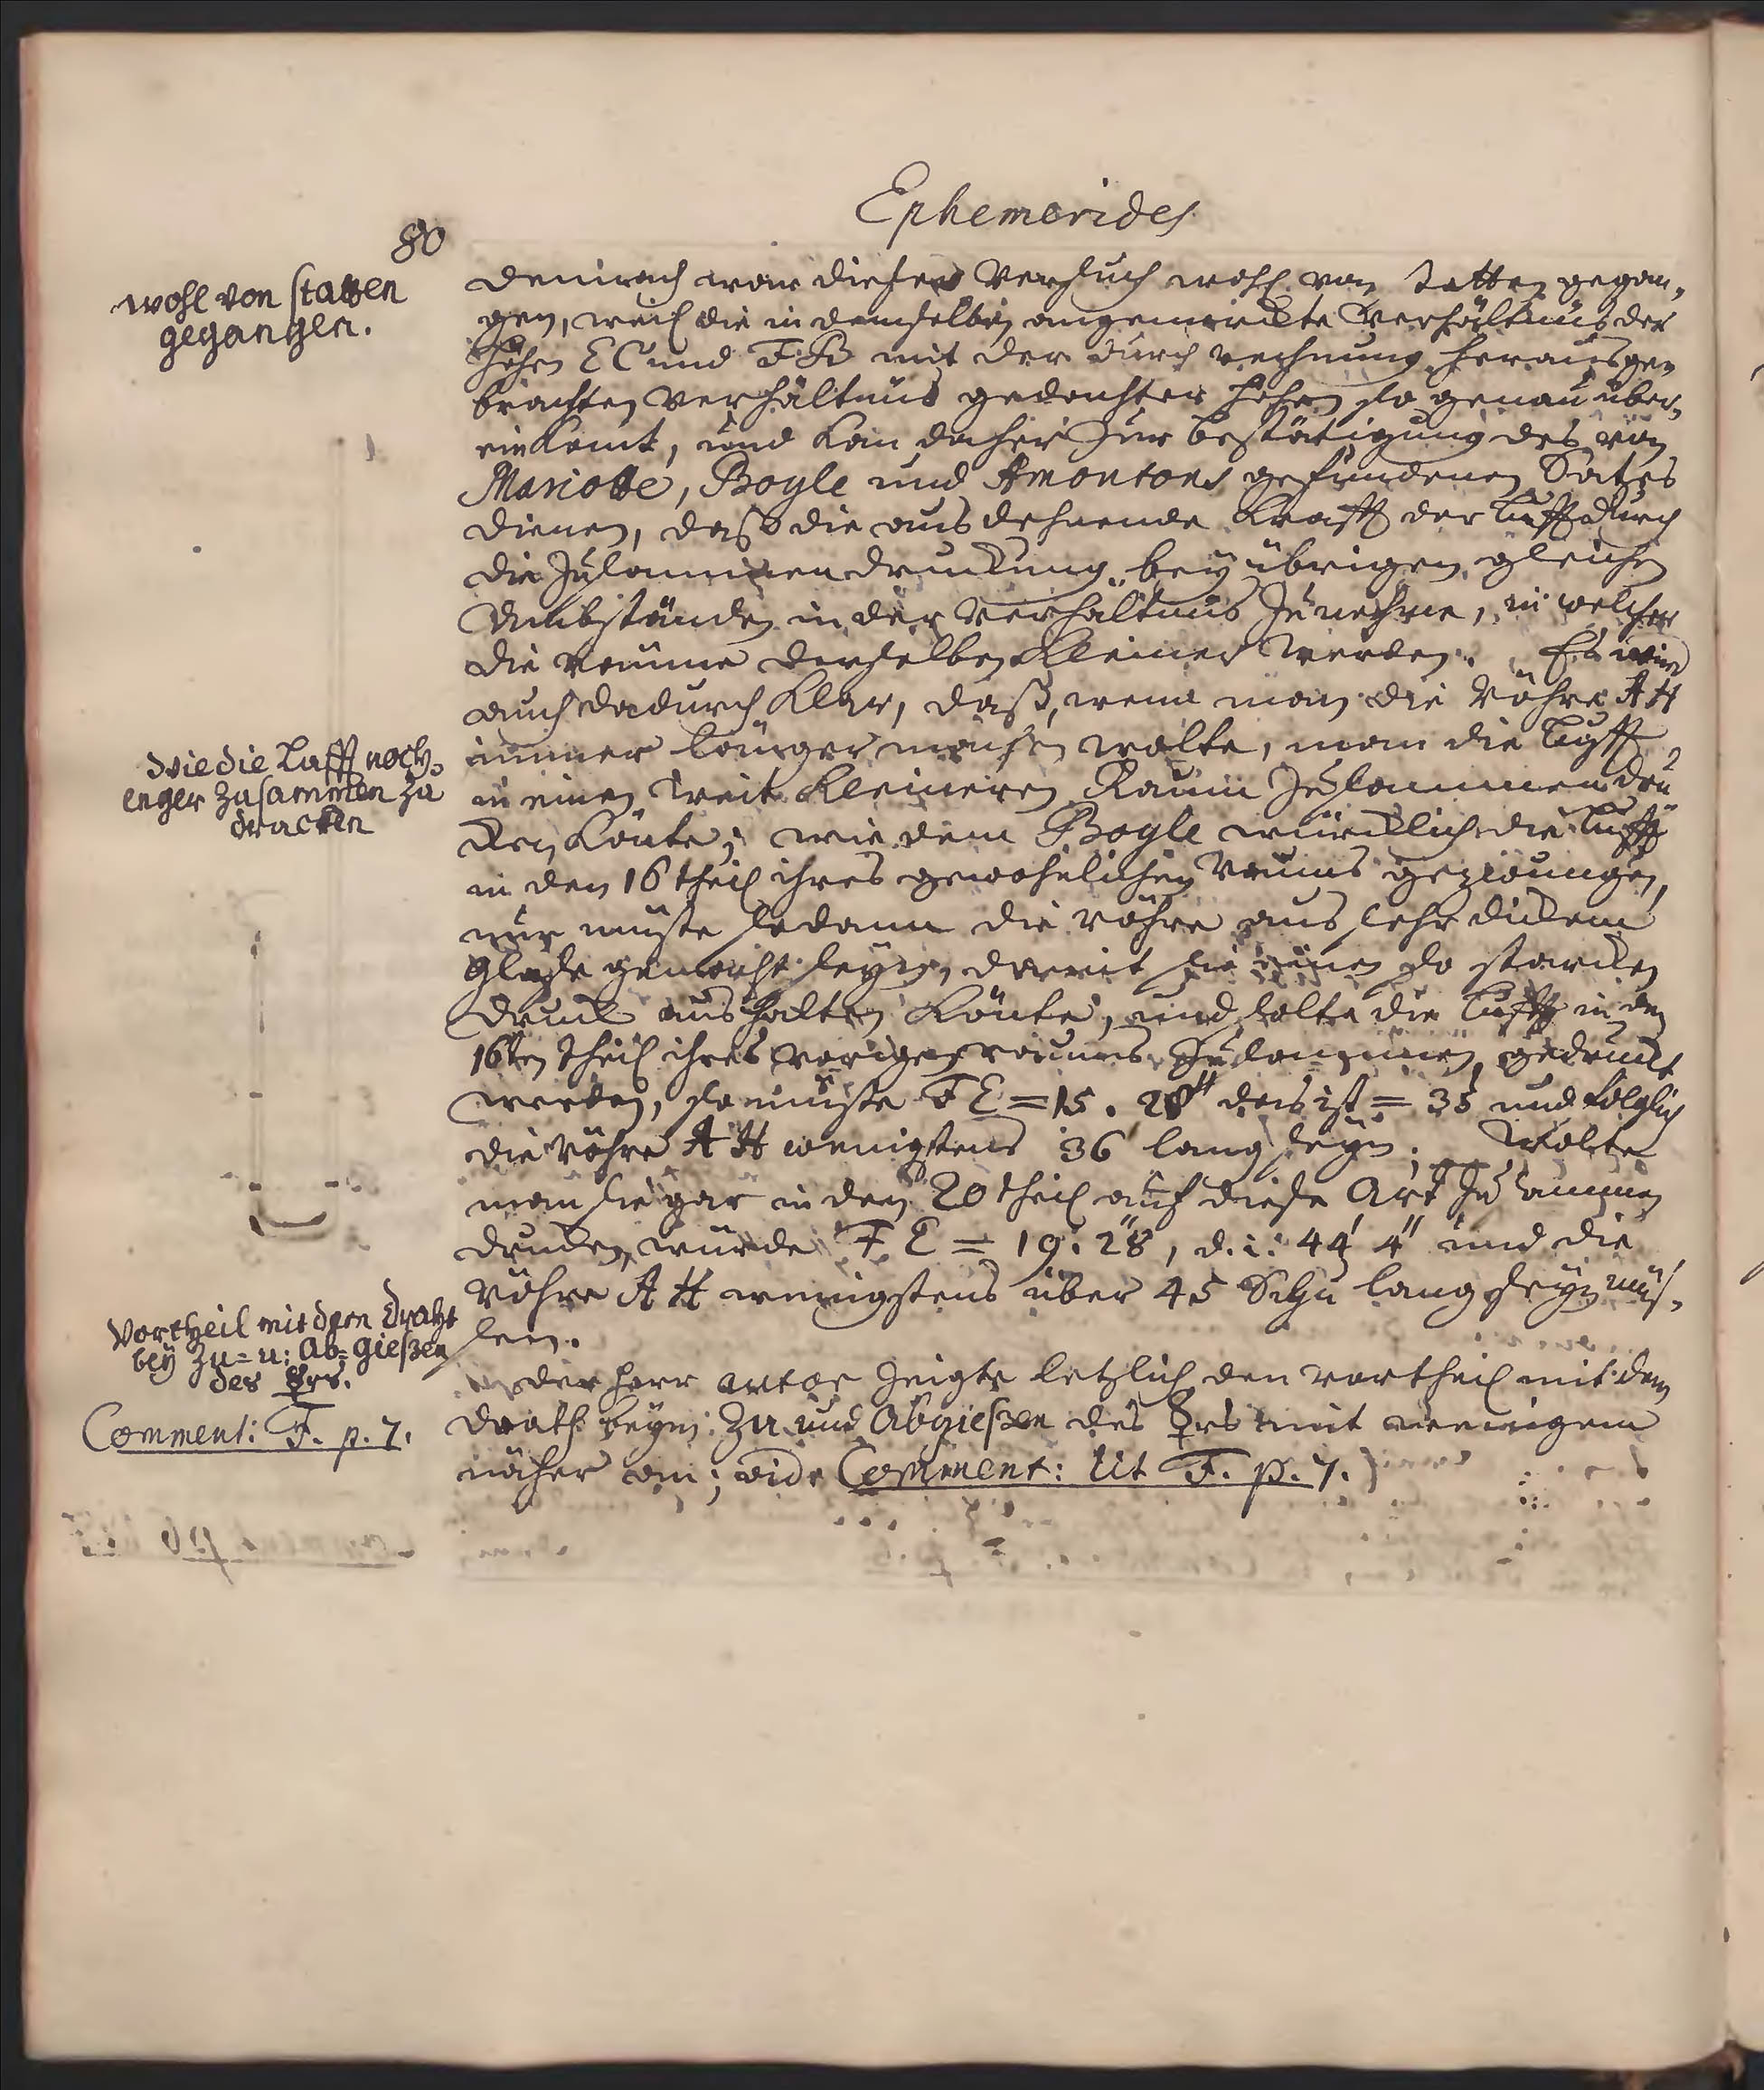 Ephemerides
80
wohl von statten
gegangen.
demnach war dieser Versuch wohl von statten gegan-
gen, weil die in demselben angemerckte Verhältnüs der
Höhen EC und FB mit der durch rechnung herausge-
brachten Verhältnüs gedachter Höhen so genau über-
einkomt, und kan daher zur bestätigung des von
Mariotte, Boyle und Amontons gefundenen Satzes
dienen, daß die ausdehnende Krafft der Lufft durch
die Zusammendruckung bey übrigen gleichen
Umbständen in der Verhältnüs zunehme, in welcher
die Räume derselben kleiner werden. Es wird
auch dadurch klar, daß, wenn man die Röhre AH
immer länger machen wolte, man die Lufft
in einen weit kleineren Raum zusammen dru
cken könte; wie denn Boyle würcklich die Lufft
in den 16 theil ihres gewöhnlichen Raums gezwungen,
nur müste sodann die röhre aus sehr dickem
Glase gemacht seyn, damit sie einen so starcken
Druck aushalten könte, und solte die Lufft in den
16ten theil ihres vorigen raumes zusammen gedruckt
werden, so müste FE = 15. 28" das ist = 35' und folglich
die röhre AH wenigstens 36' lang seyn; Wolte
man sie gar in den 20 theil auf diese Art zusammen
drucken, würde FE = 19. 28", d. i. 44' 4" und die
röhre AH wenigstens über 45 Schu lang seyn müs-
sen.
wie die Lufft noch
enger zusammen zu
drucken
Vortheil mit dem Draht
bey Zu- u: Ab-gießen
des ☿rs.
Comment: F. p. 7.
der Herr autor zeigte letzlich den vortheil mit dem
Drath beym Zu und Abgießen des ☿rs mit wenigem
näher an; vide Comment: lit F. p. 7.